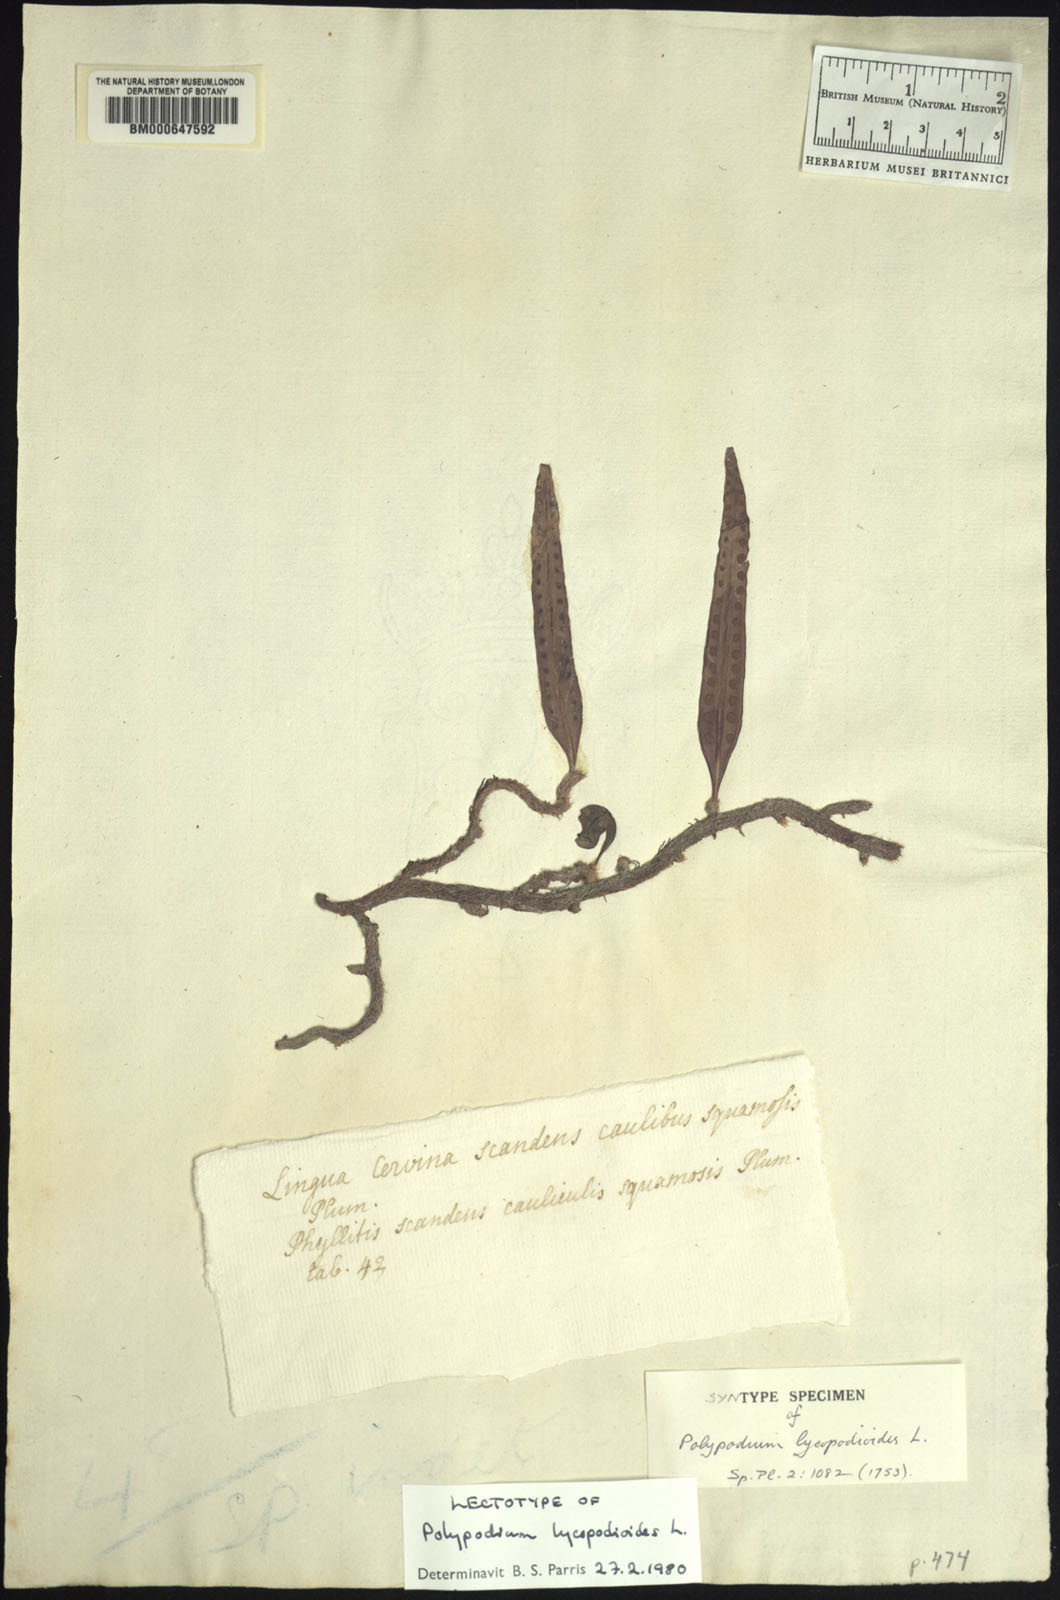 THE NATURAL HISTORY MUSEUM, LONDON
DEPARTMENT OF BOTANY
BM000647592
1 2
BRITISH MUSEUM (NATURAL HISTORY)
1 2 3 4 5
HERBARIUM MUSEI BRITANNICI
Lingua Cervina scandens caulibus squamosis
Plum.
Phyllitis scandens cauliculis squamosis Plum.
tab. 42
SYNTYPE SPECIMEN
of
Polypodium lycopodioides L.
Sp. Pl. 2: 1082 (1753).
LECTOTYPE OF
Polypodium lycopodioides L.
Determinavit B. S. Parris 27.2.1980
p. 474